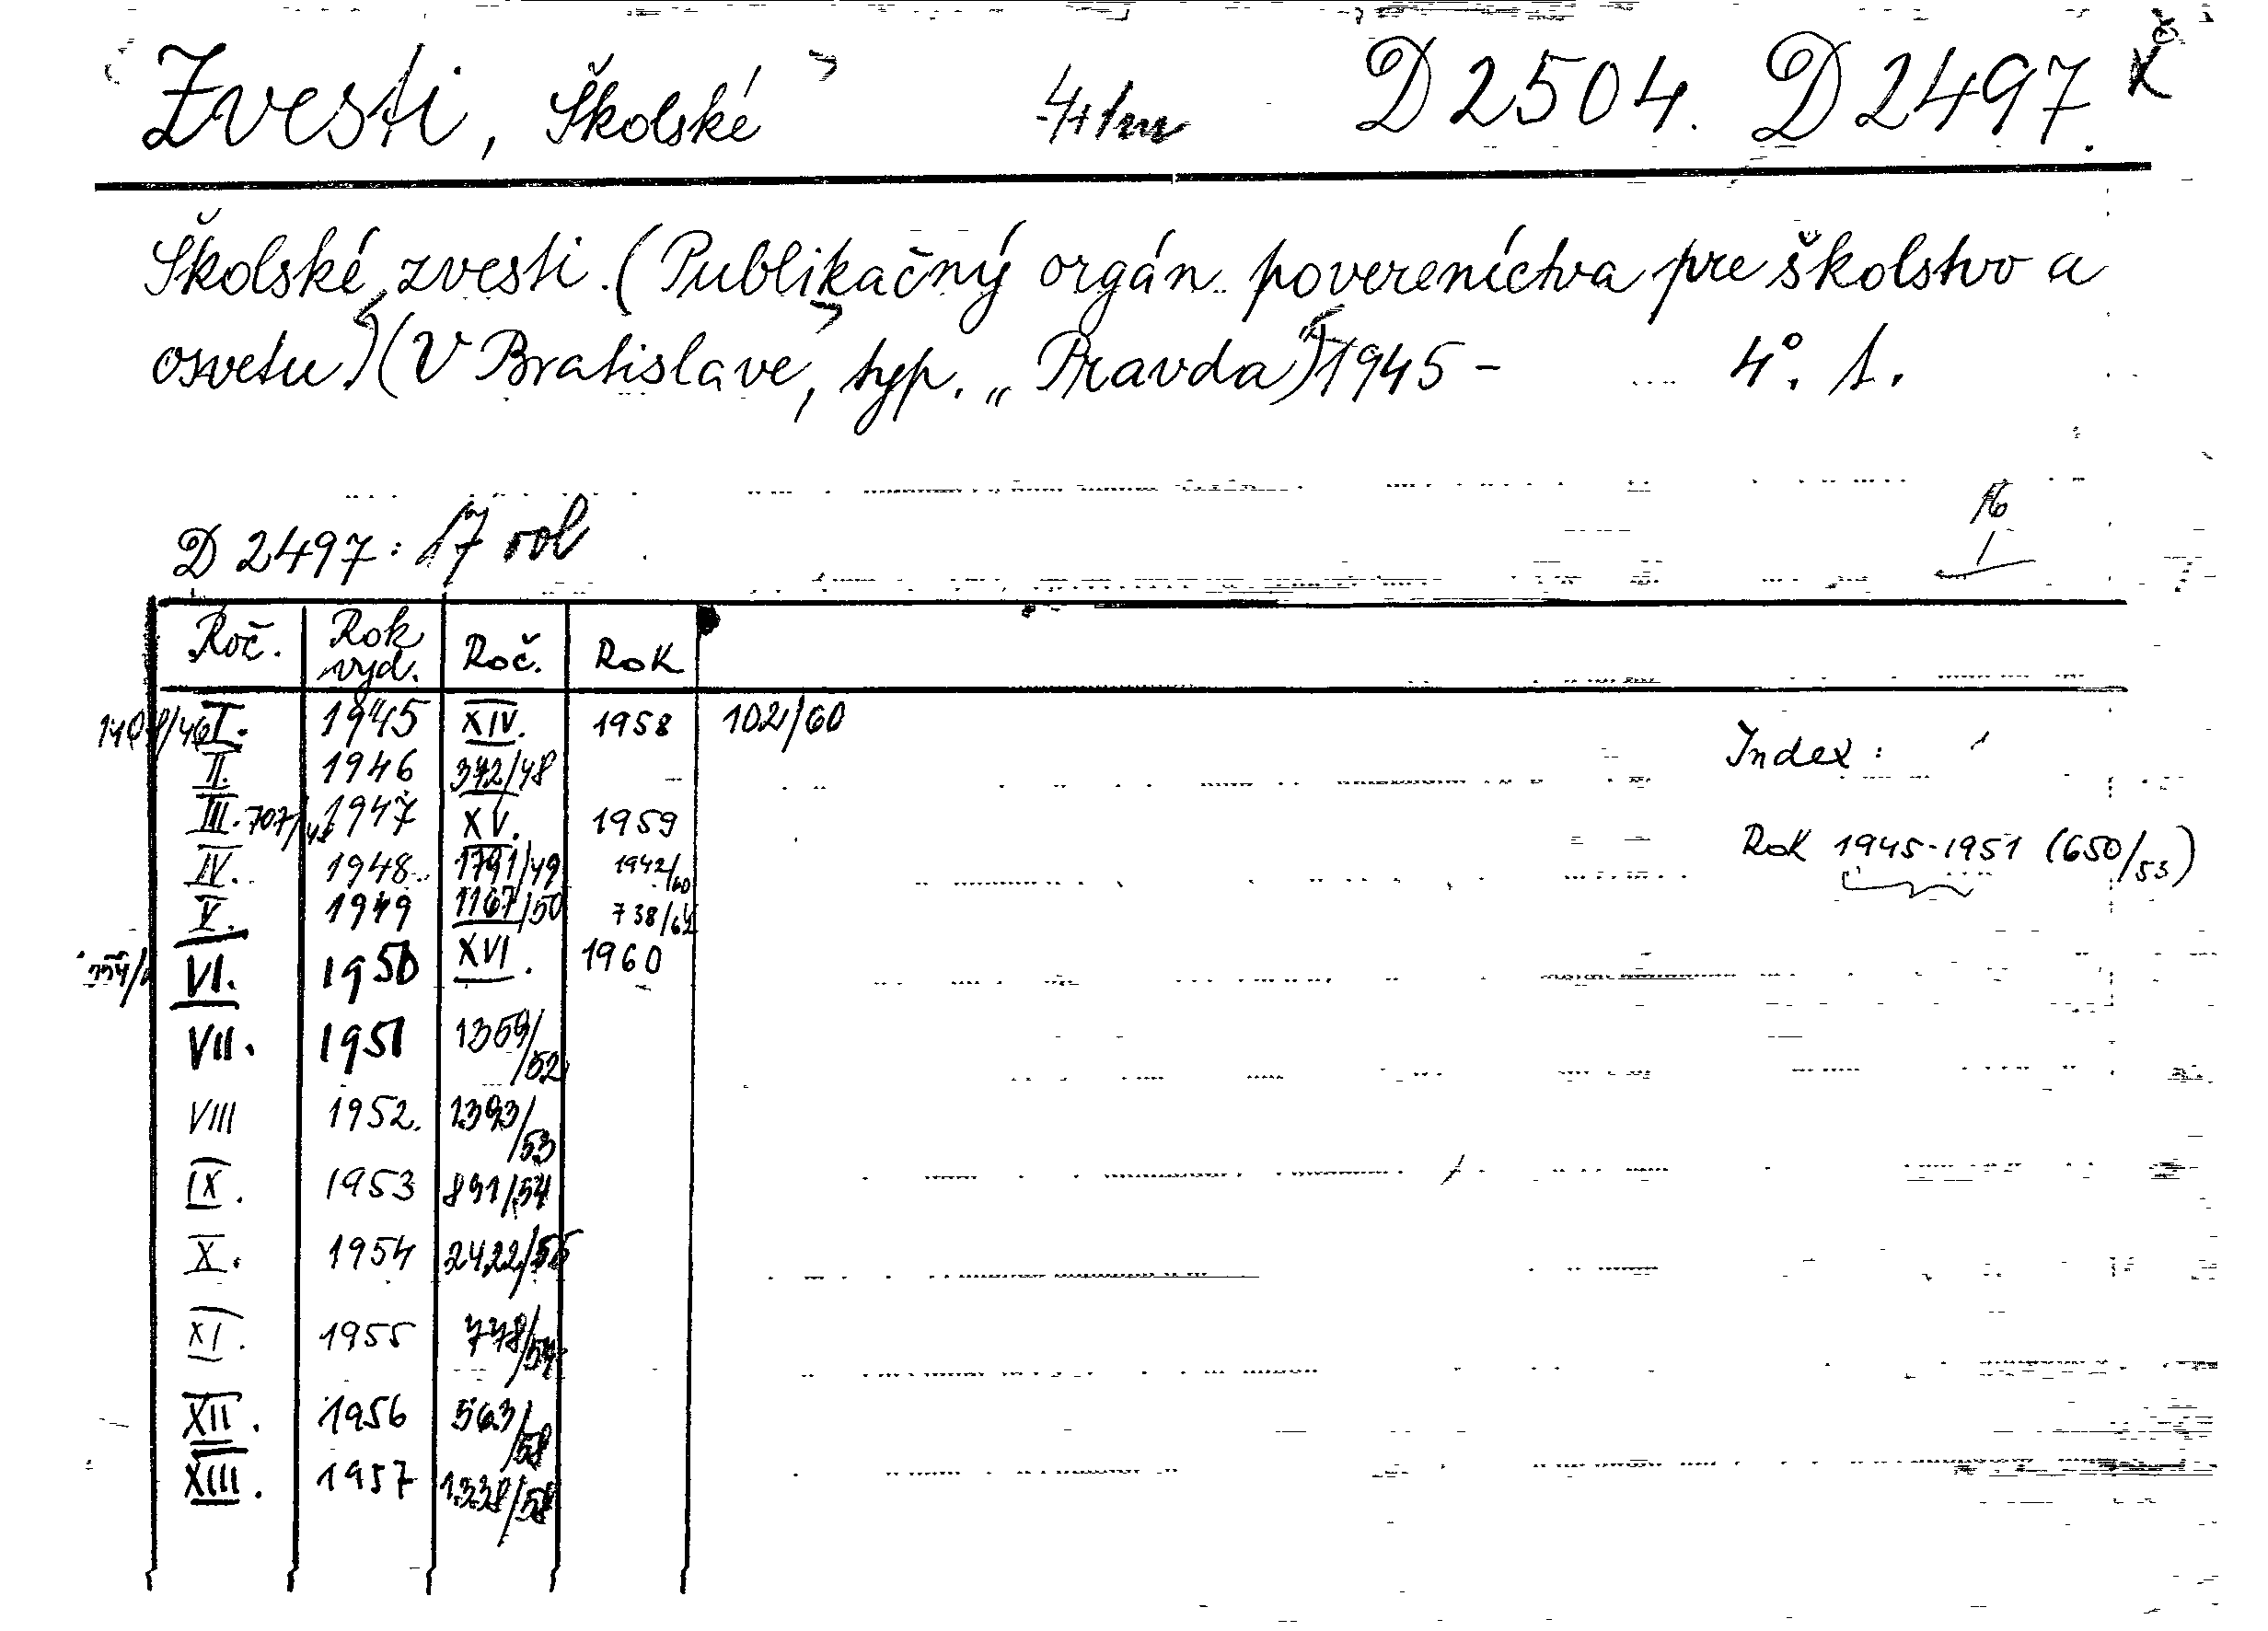 Zvesti, Školské D 2504. D 2497.
Školské zvesti. (Publikačný orgán povereníctva pre školstvo a
osvetu.) (V Bratislave, typ. „Pravda") 1945 - 4°. 1.
16
D 2497: 17 rol
Roč. Rok vyd. Roč. Rok
I. 1945 XIV. 1958 102/60
II. 1946 372/48
Index:
III. 707/48 1947 XV. 1959
Rok 1945-1951 (650/53)
IV. 1948 1791/49 1942/60
V. 1949 1167/50 738/62
VI. 1950 XVI. 1960
VII. 1951 1359/52
VIII 1952. 1393/53
IX. 1953 891/54
X. 1954 2422/55
XI. 1955 778/57
XII. 1956 563/58
XIII. 1957 1338/58